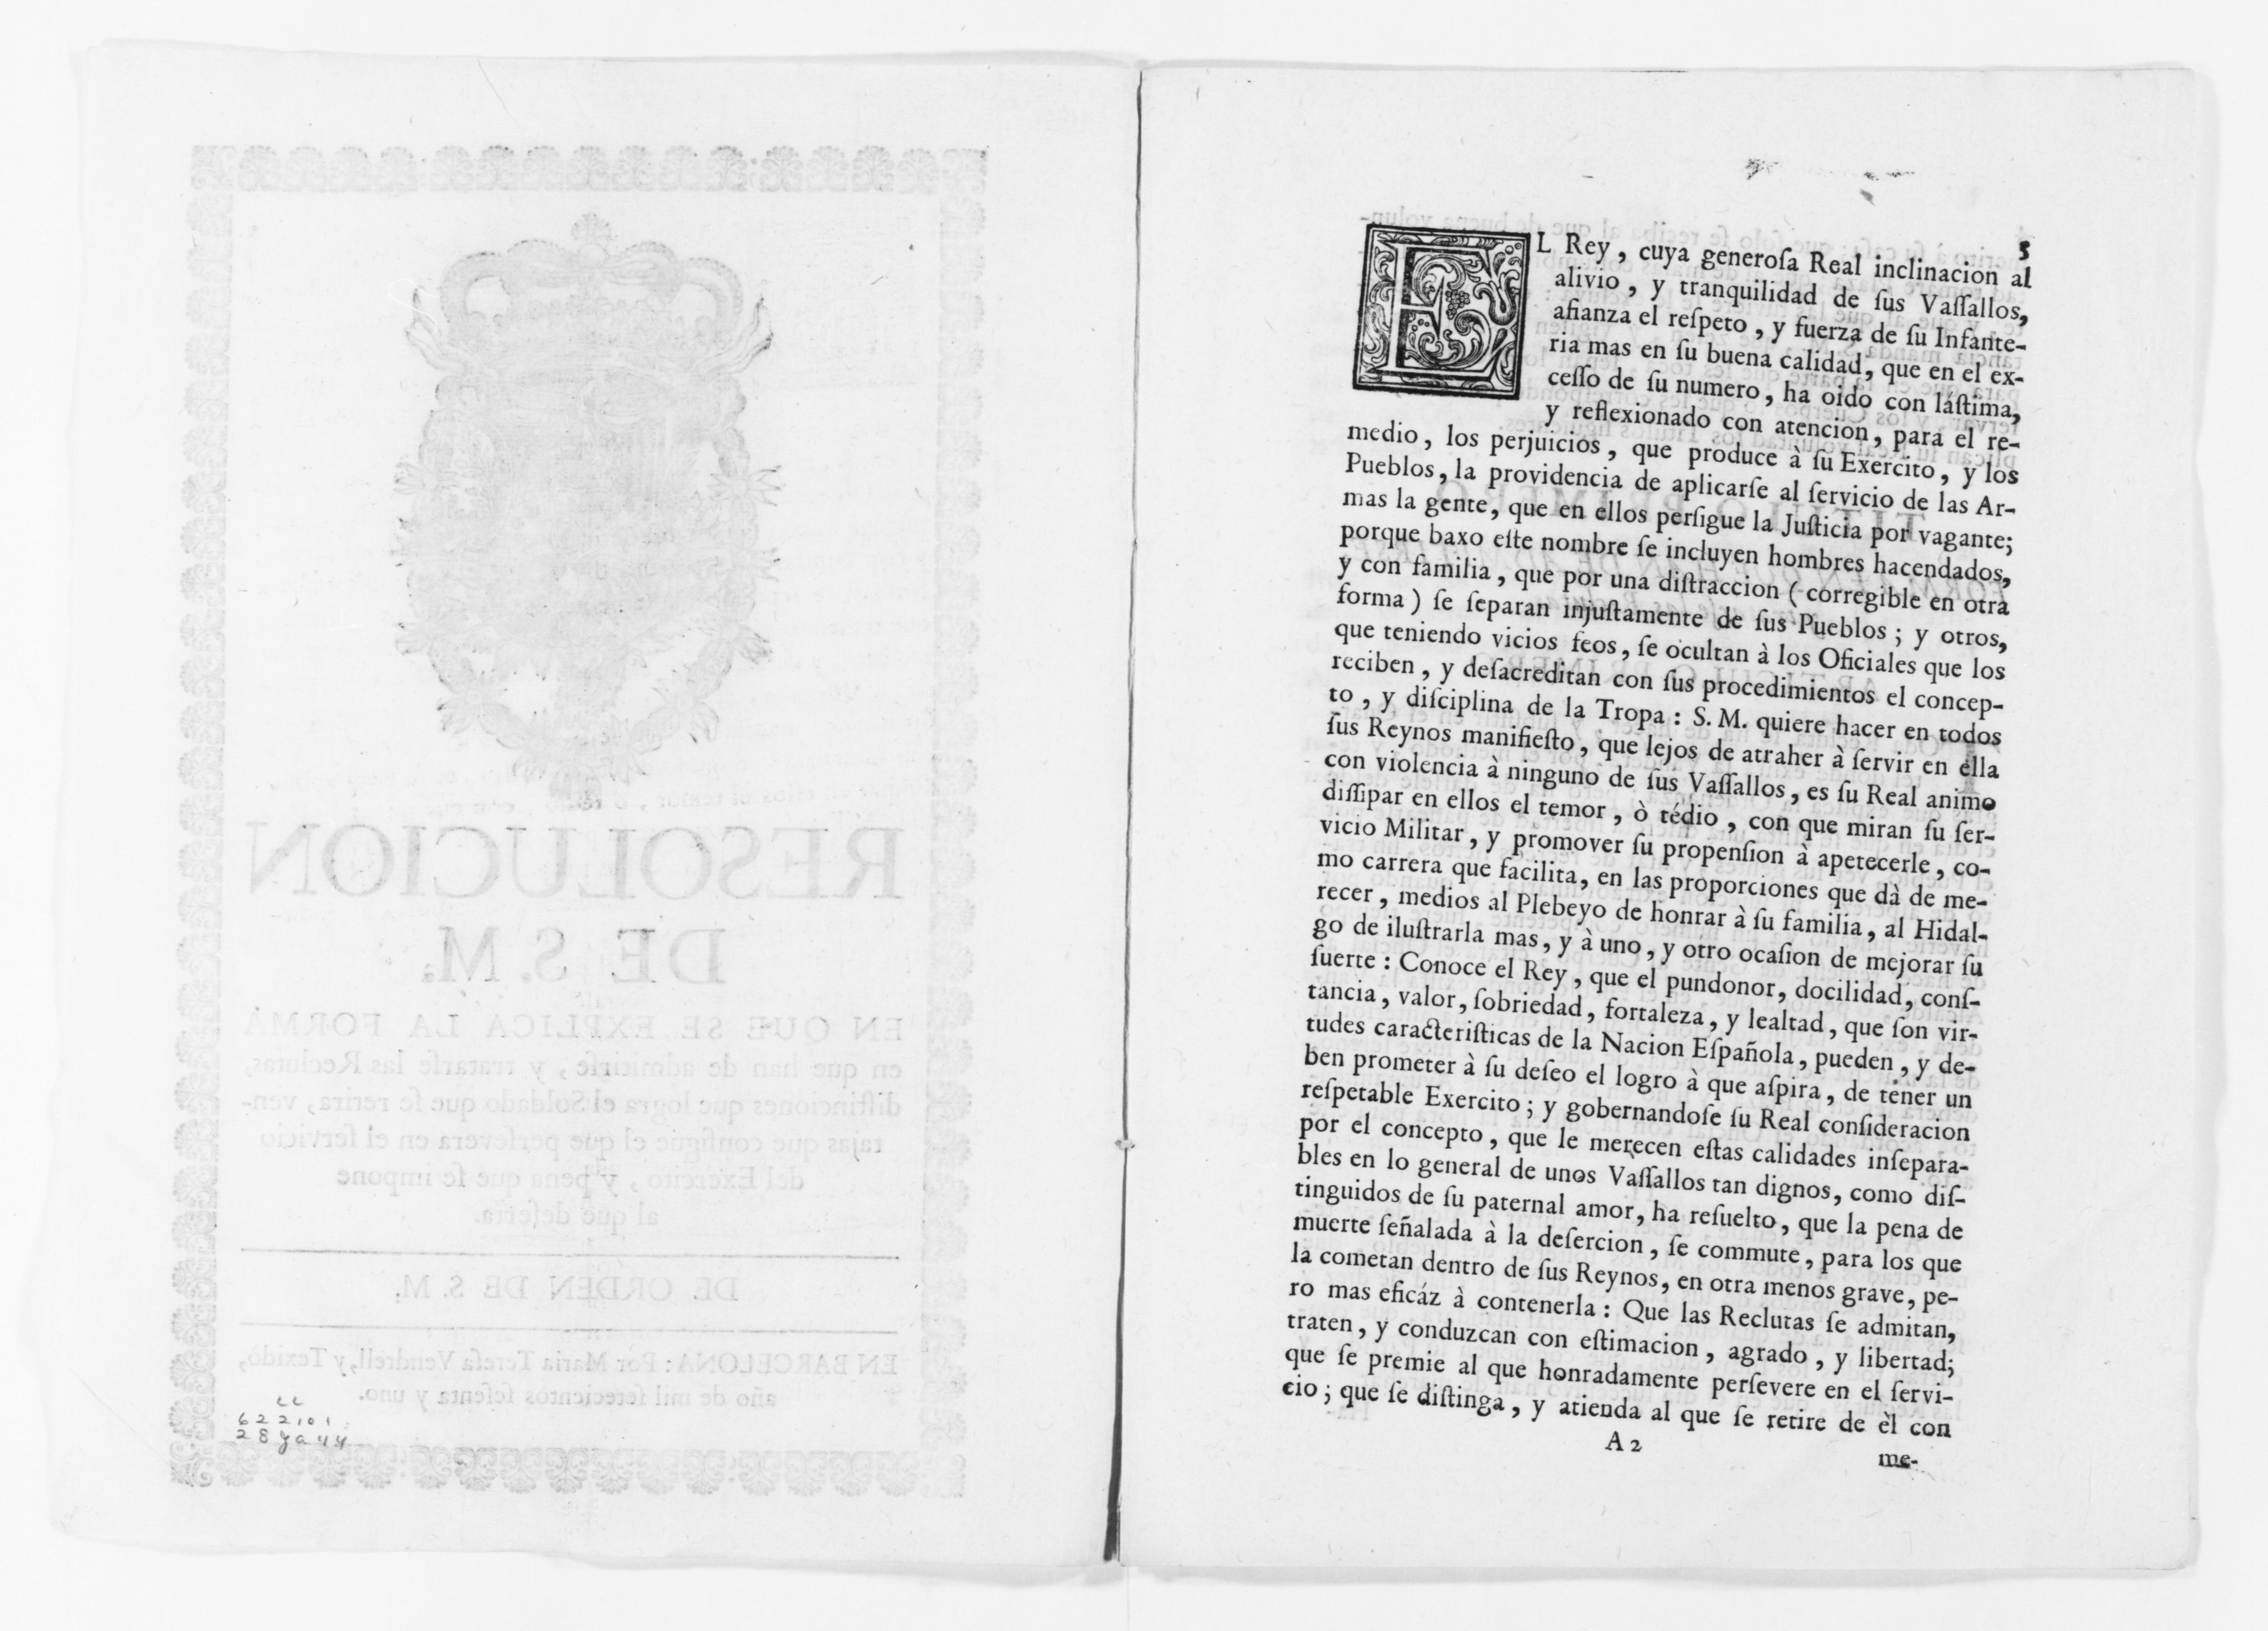 RESOLUCION
DE S. M.
EN QUE SE EXPLICA LA FORMA
en que han de admitirſe, y tratarſe las Reclutas,
diſtinciones que logra el Soldado que ſe retira, ven-
tajas que conſigue el que perſevera en el ſervicio
del Exercito, y pena que ſe impone
al que deſerta.
DE ORDEN DE S. M.
EN BARCELONA: Por Maria Tereſa Vendrell, y Texidò,
año de mil ſetecientos ſeſenta y uno.
cc
622101
28 ja 44
3
EL Rey, cuya generoſa Real inclinacion al
alivio, y tranquilidad de ſus Vaſſallos,
afianza el reſpeto, y fuerza de ſu Infante-
ria mas en ſu buena calidad, que en el ex-
ceſſo de ſu numero, ha oido con láſtima,
y reflexionado con atencion, para el re-
medio, los perjuicios, que produce à ſu Exercito, y los
Pueblos, la providencia de aplicarſe al ſervicio de las Ar-
mas la gente, que en ellos perſigue la Juſticia por vagante;
porque baxo eſte nombre ſe incluyen hombres hacendados,
y con familia, que por una diſtraccion (corregible en otra
forma) ſe ſeparan injuſtamente de ſus Pueblos; y otros,
que teniendo vicios feos, ſe ocultan à los Oficiales que los
reciben, y deſacreditan con ſus procedimientos el concep-
to, y diſciplina de la Tropa: S. M. quiere hacer en todos
ſus Reynos manifieſto, que lejos de atraher à ſervir en ella
con violencia à ninguno de ſus Vaſſallos, es ſu Real animo
diſſipar en ellos el temor, ò tédio, con que miran ſu ſer-
vicio Militar, y promover ſu propenſion à apetecerle, co-
mo carrera que facilita, en las proporciones que dà de me-
recer, medios al Plebeyo de honrar à ſu familia, al Hidal-
go de iluſtrarla mas, y à uno, y otro ocaſion de mejorar ſu
ſuerte: Conoce el Rey, que el pundonor, docilidad, conſ-
tancia, valor, ſobriedad, fortaleza, y lealtad, que ſon vir-
tudes caracteriſticas de la Nacion Eſpañola, pueden, y de-
ben prometer à ſu deſeo el logro à que aſpira, de tener un
reſpetable Exercito; y gobernandoſe ſu Real conſideracion
por el concepto, que le merecen eſtas calidades inſepara-
bles en lo general de unos Vaſſallos tan dignos, como diſ-
tinguidos de ſu paternal amor, ha reſuelto, que la pena de
muerte ſeñalada à la deſercion, ſe commute, para los que
la cometan dentro de ſus Reynos, en otra menos grave, pe-
ro mas eficáz à contenerla: Que las Reclutas ſe admitan,
traten, y conduzcan con eſtimacion, agrado, y libertad;
que ſe premie al que honradamente perſevere en el ſervi-
cio; que ſe diſtinga, y atienda al que ſe retire de èl con
A 2
me-